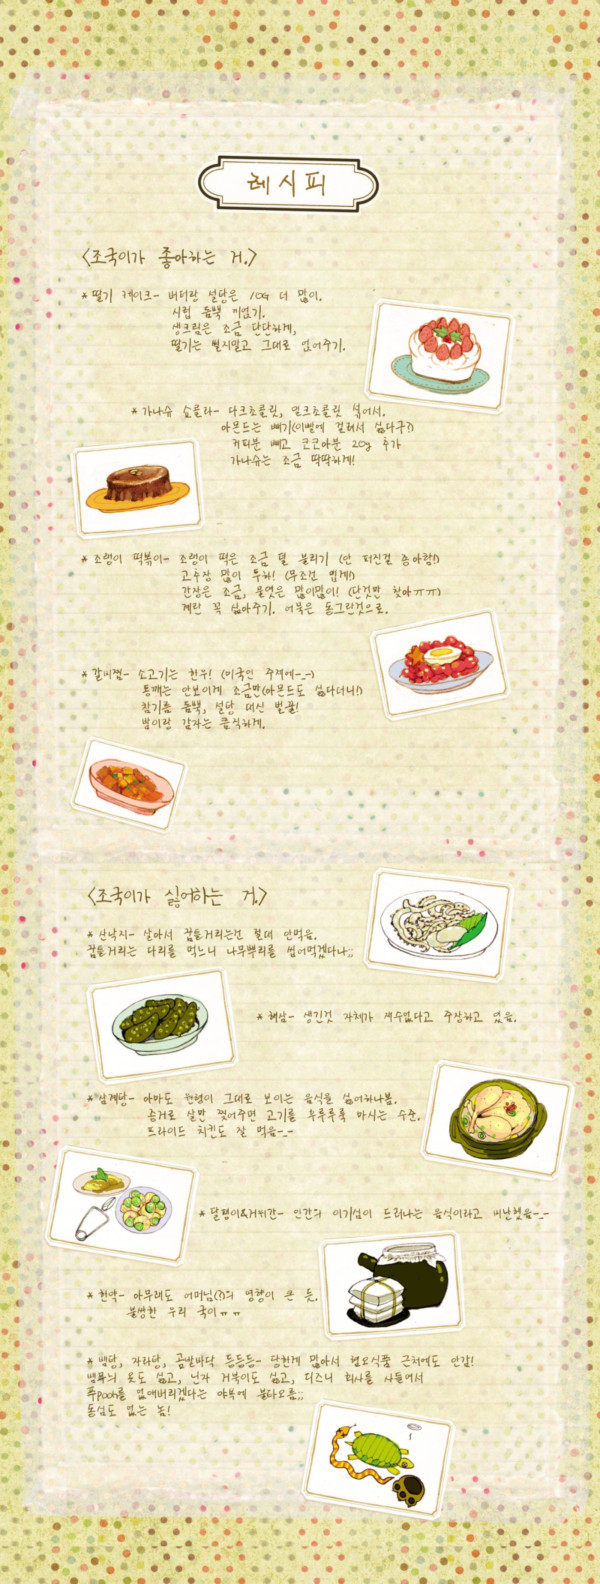 레시피
<조국이가 좋아하는 거.>
* 딸기 케이크- 버터랑 설탕은 10G 더 많이.
시럽 듬뿍 끼얹기.
생크림은 조금 단단하게,
딸기는 썰지말고 그대로 얹어주기.
* 가나슈 쇼콜라- 다크초콜릿, 밀크초콜릿 섞어서.
아몬드는 빼기(이빨에 걸려서 싫다구?)
커피분 빼고 코코아분 20g 추가
가나슈는 조금 딱딱하게!
* 조랭이 떡볶이- 조랭이 떡은 조금 덜 불리기 (안 퍼진걸 좋아함!)
고추장 많이 투하! (무조건 맵게!)
간장은 조금, 물엿은 많이많이! (단것만 찾아ㅠㅠ)
계란 꼭 삶아주기. 어묵은 동그란것으로.
* 갈비찜- 소고기는 한우! (미국인 주제에-_-)
통깨는 안보이게 조금만(아몬드도 싫다더니!)
참기름 듬뿍, 설탕 대신 벌꿀!
밤이랑 감자는 큼직하게.
<조국이가 싫어하는 거.>
* 산낙지- 살아서 꿈틀거리는건 절대 안먹음.
꿈틀거리는 다리를 먹느니 나무뿌리를 씹어먹겠다나;;
* 해삼- 생긴것 자체가 재수없다고 주장하고 있음.
* 삼계탕- 아마도 원형이 그대로 보이는 음식을 싫어하나봄.
증거로 살만 찢어주면 고기를 후루루룩 마시는 수준.
프라이드 치킨도 잘 먹음-_-
* 달팽이&거위간- 인간의 이기심이 드러나는 음식이라고 비난했음-_-
* 한약- 아무래도 어머님(?)의 영향이 큰 듯.
불쌍한 우리 국이ㅠㅠ
* 뱀탕, 자라탕, 곰발바닥 등등등- 당한게 많아서 혐오식품 근처에도 안감!
뱀무늬 옷도 싫고, 닌자 거북이도 싫고, 디즈니 회사를 사들여서
푸pooh를 없애버리겠다는 야욕에 불타오름;;
동심도 없는 놈!